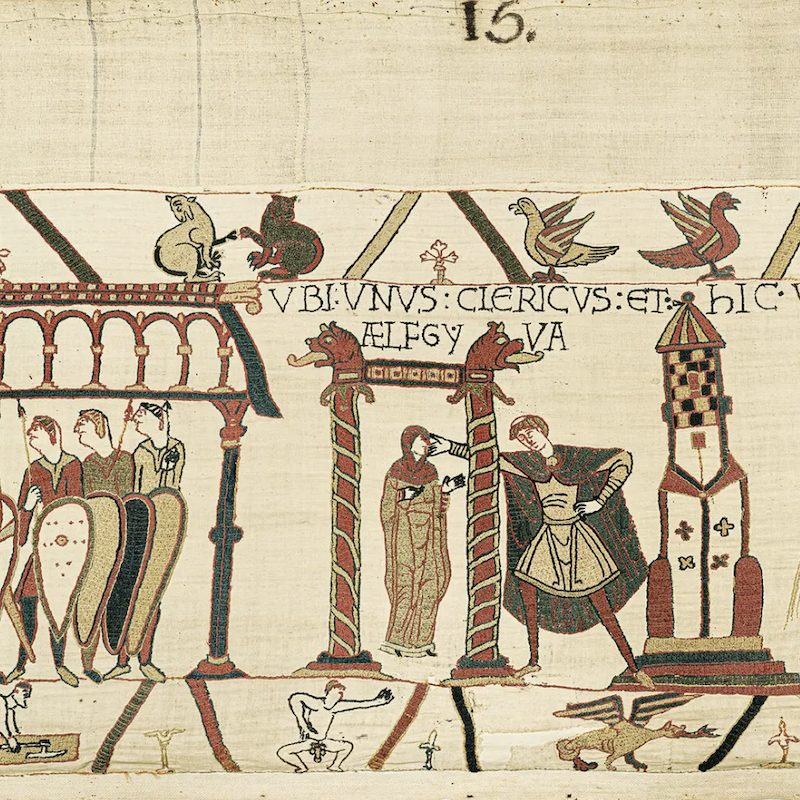 15.
VBI:VNVS:CLERICVS:ET:
ÆLFGYVA
hIC·V